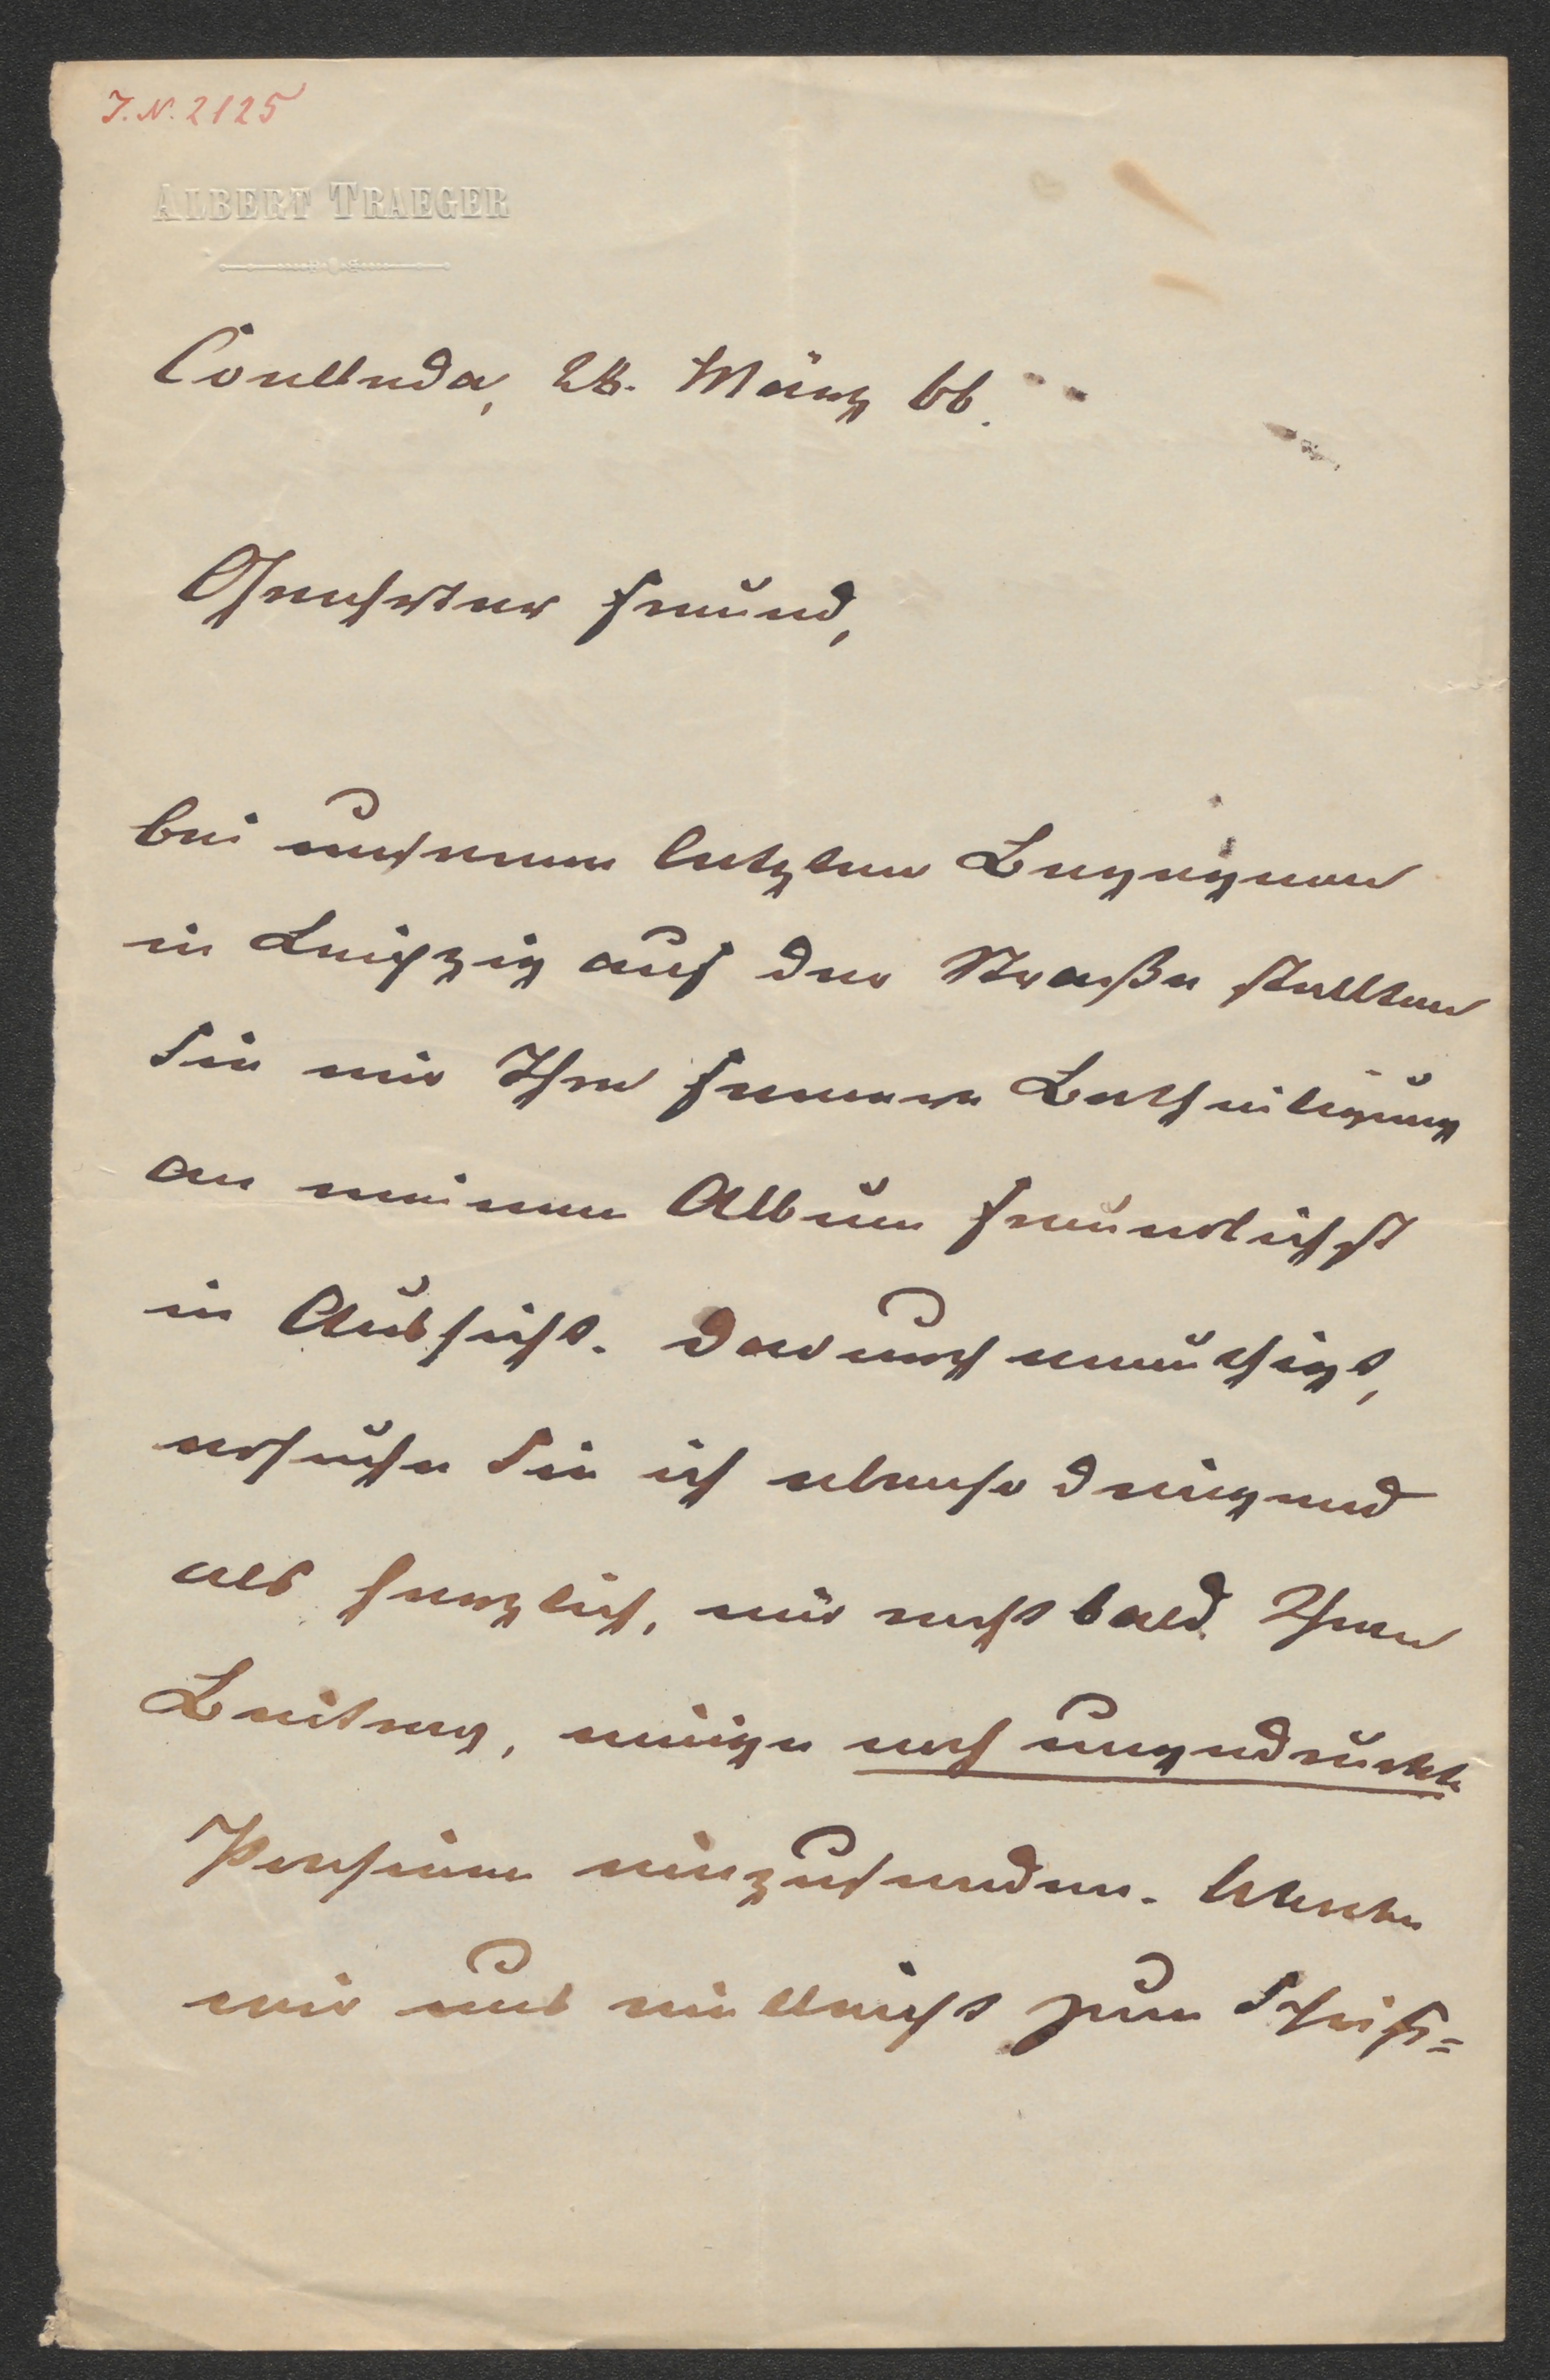 J.N. 2125
ALBERT TRAEGER
Coelleda, 28. März 66.
Geehrter Freund,
bei unserem letzten Begegnen
in Leipzig auf der Straße stellten
Sie mir Ihre fernere Betheiligung
an meinem Album freundlichst
in Aussicht. Dadurch ermuthigt,
ersuche Sie ich ebenso dringend
als herzlich, mir recht bald Ihren
Beitrag, einige noch ungedruckte
Poesieen einzusenden. Werthe
wir uns vielleicht zum Schrift=